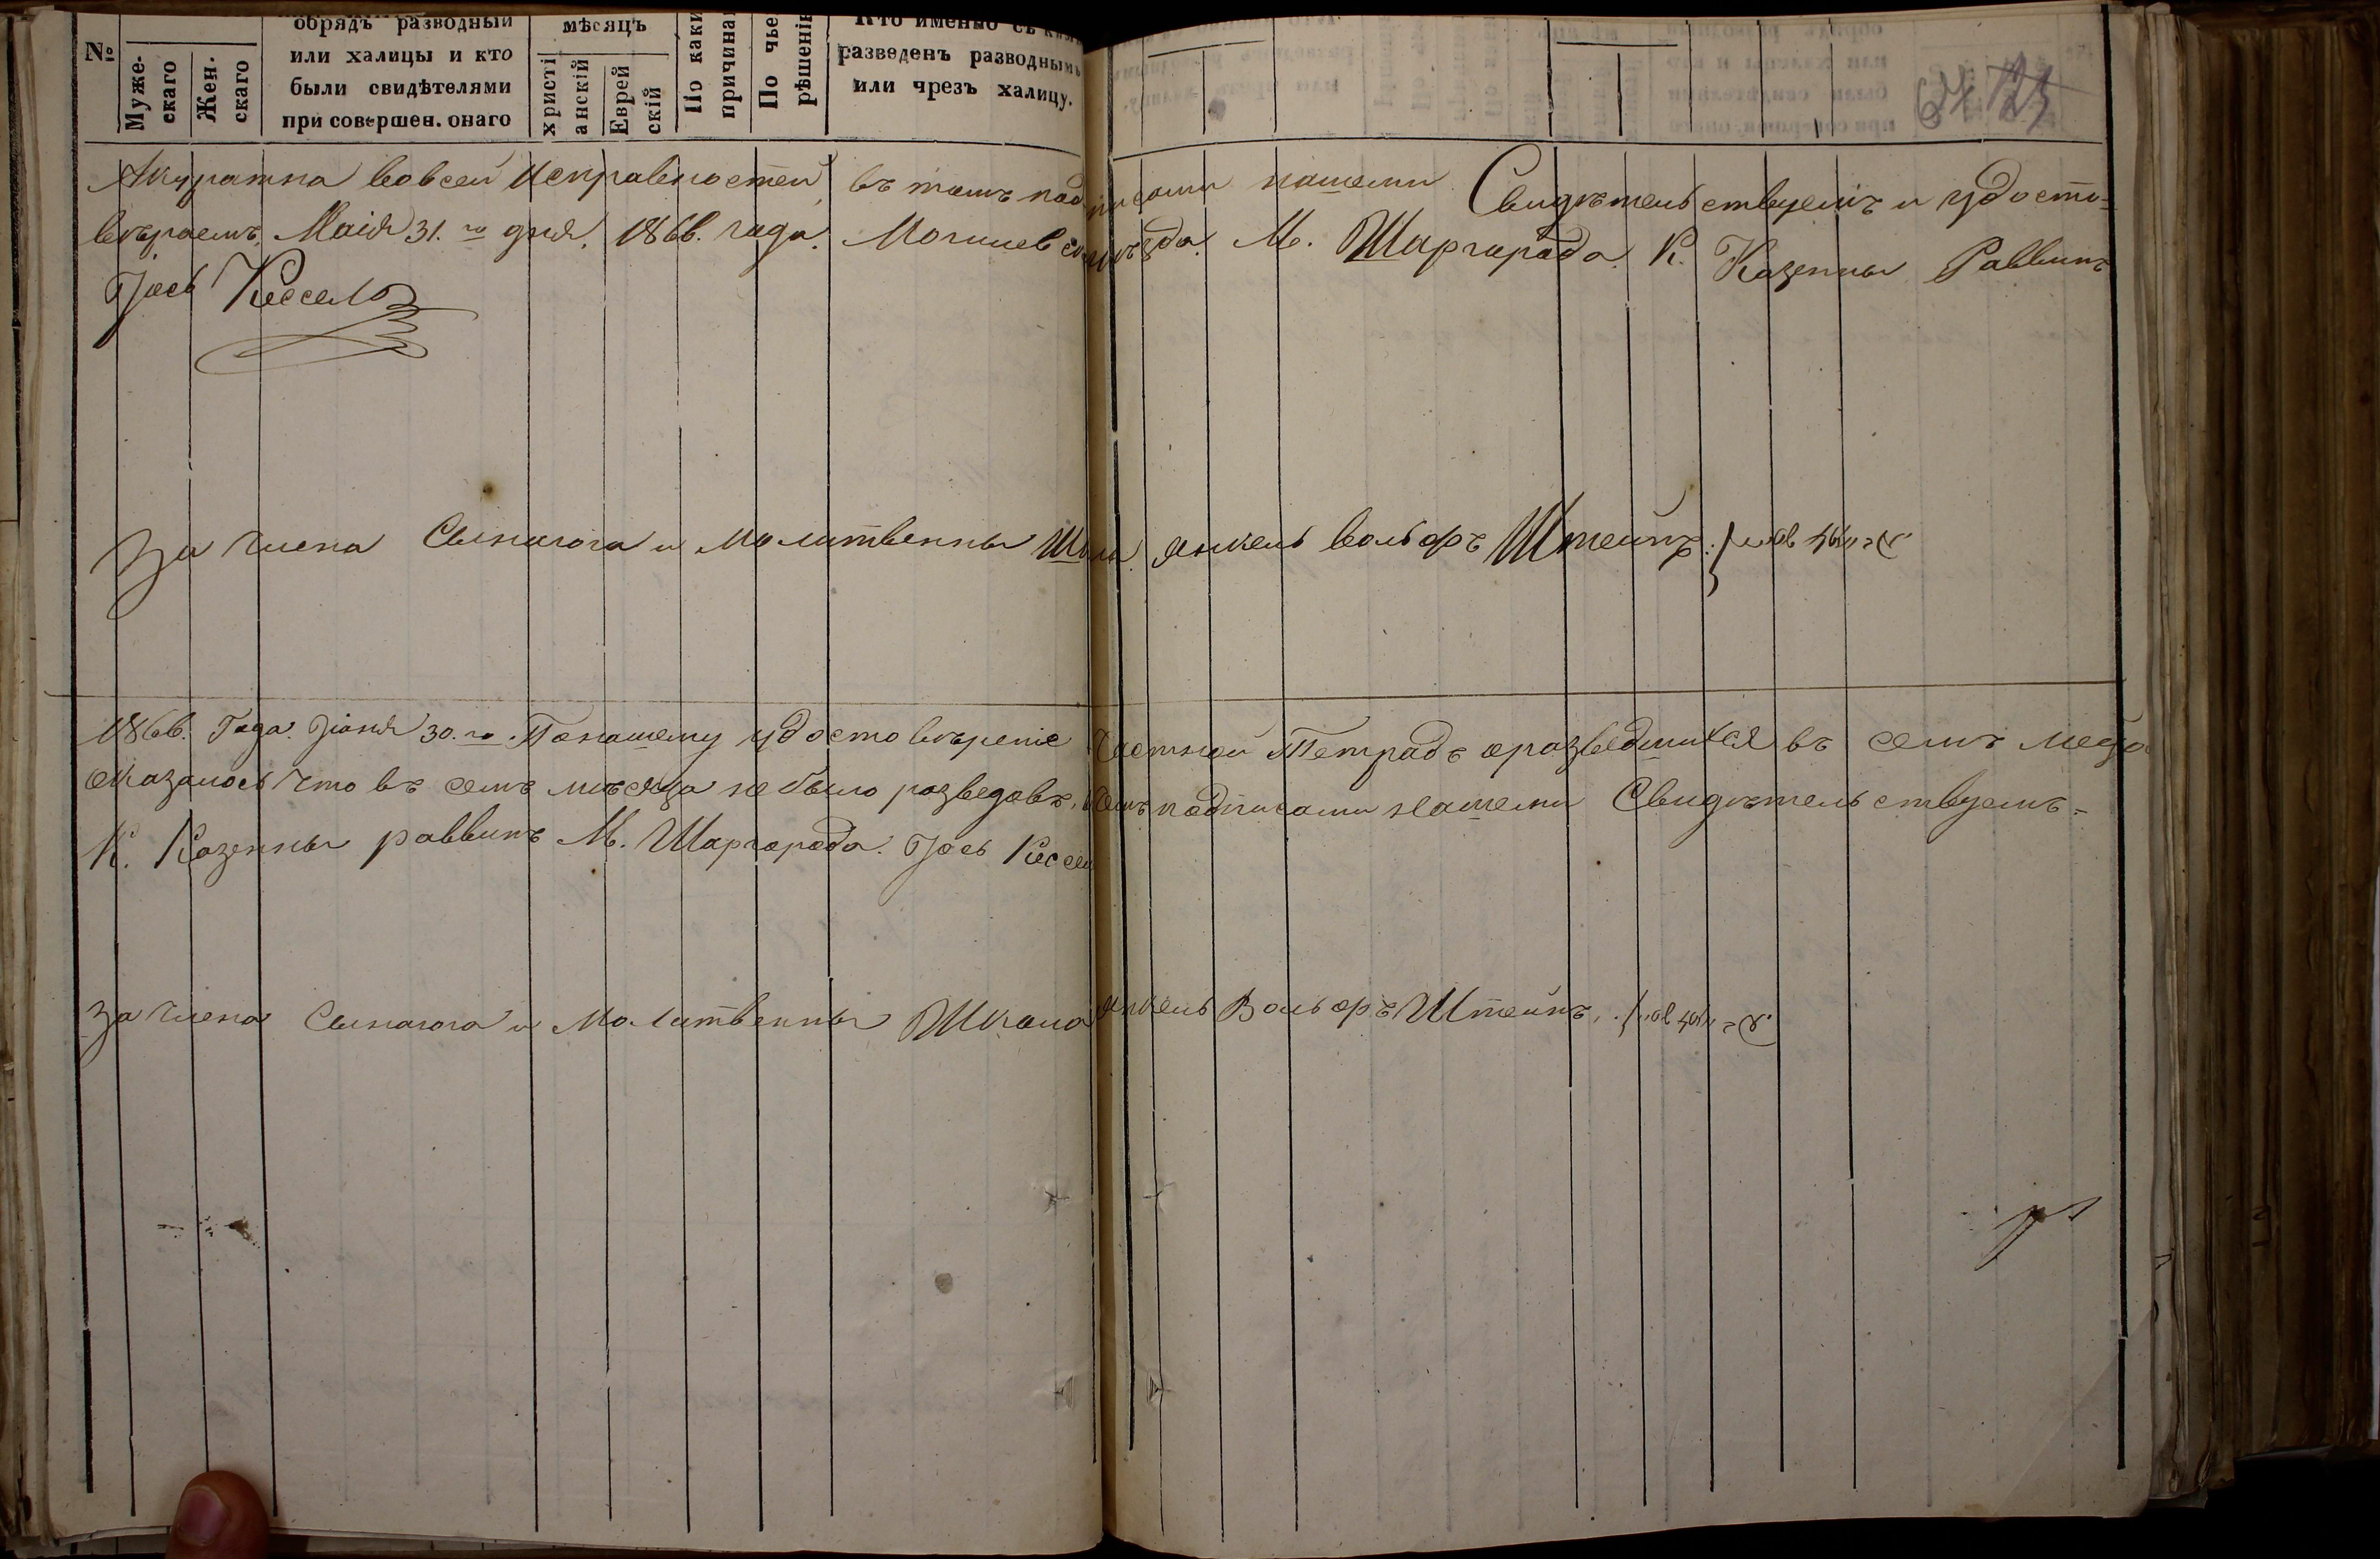 №
Муже-
скаго
Жен-
скаго
обрядъ разводный
или халицы и кто
были свидѣтелями
при совершен. онаго
мѣсяцъ
христі
анскій
Еврей
скій
По каки
причина
По чье
рѣшенію
Кто именно съ кѣмъ
разведенъ разводнымъ
или чрезъ халицу.
Акуратна вовсей Исправностей, въ томъ подписами нашеми Свидѣтельствуемъ и удосто-
вѣраемъ, Маія 31.го дня. 1866. года. Могилев уѣзда. М. Шаргарода. К. Казенны Раввинъ
Іось Кессель
За члена Сынагога и Молитвенны Школа. Янкель Вольфъ Штейнъ.
1866. Года. Іюня 30.го. Понашему удостовѣреніе Частной Тетрадъ оразведшихся въ семъ
оказалось что въ семъ мѣсяца небыло розведовъ, подписами нашеми Свидѣтельствуемъ =
К. Казенны раввинъ М. Шаргорода. Іось Кессель
За члена Сынагога и Молитвенны Школа Янкель Вольфъ Штейнъ.